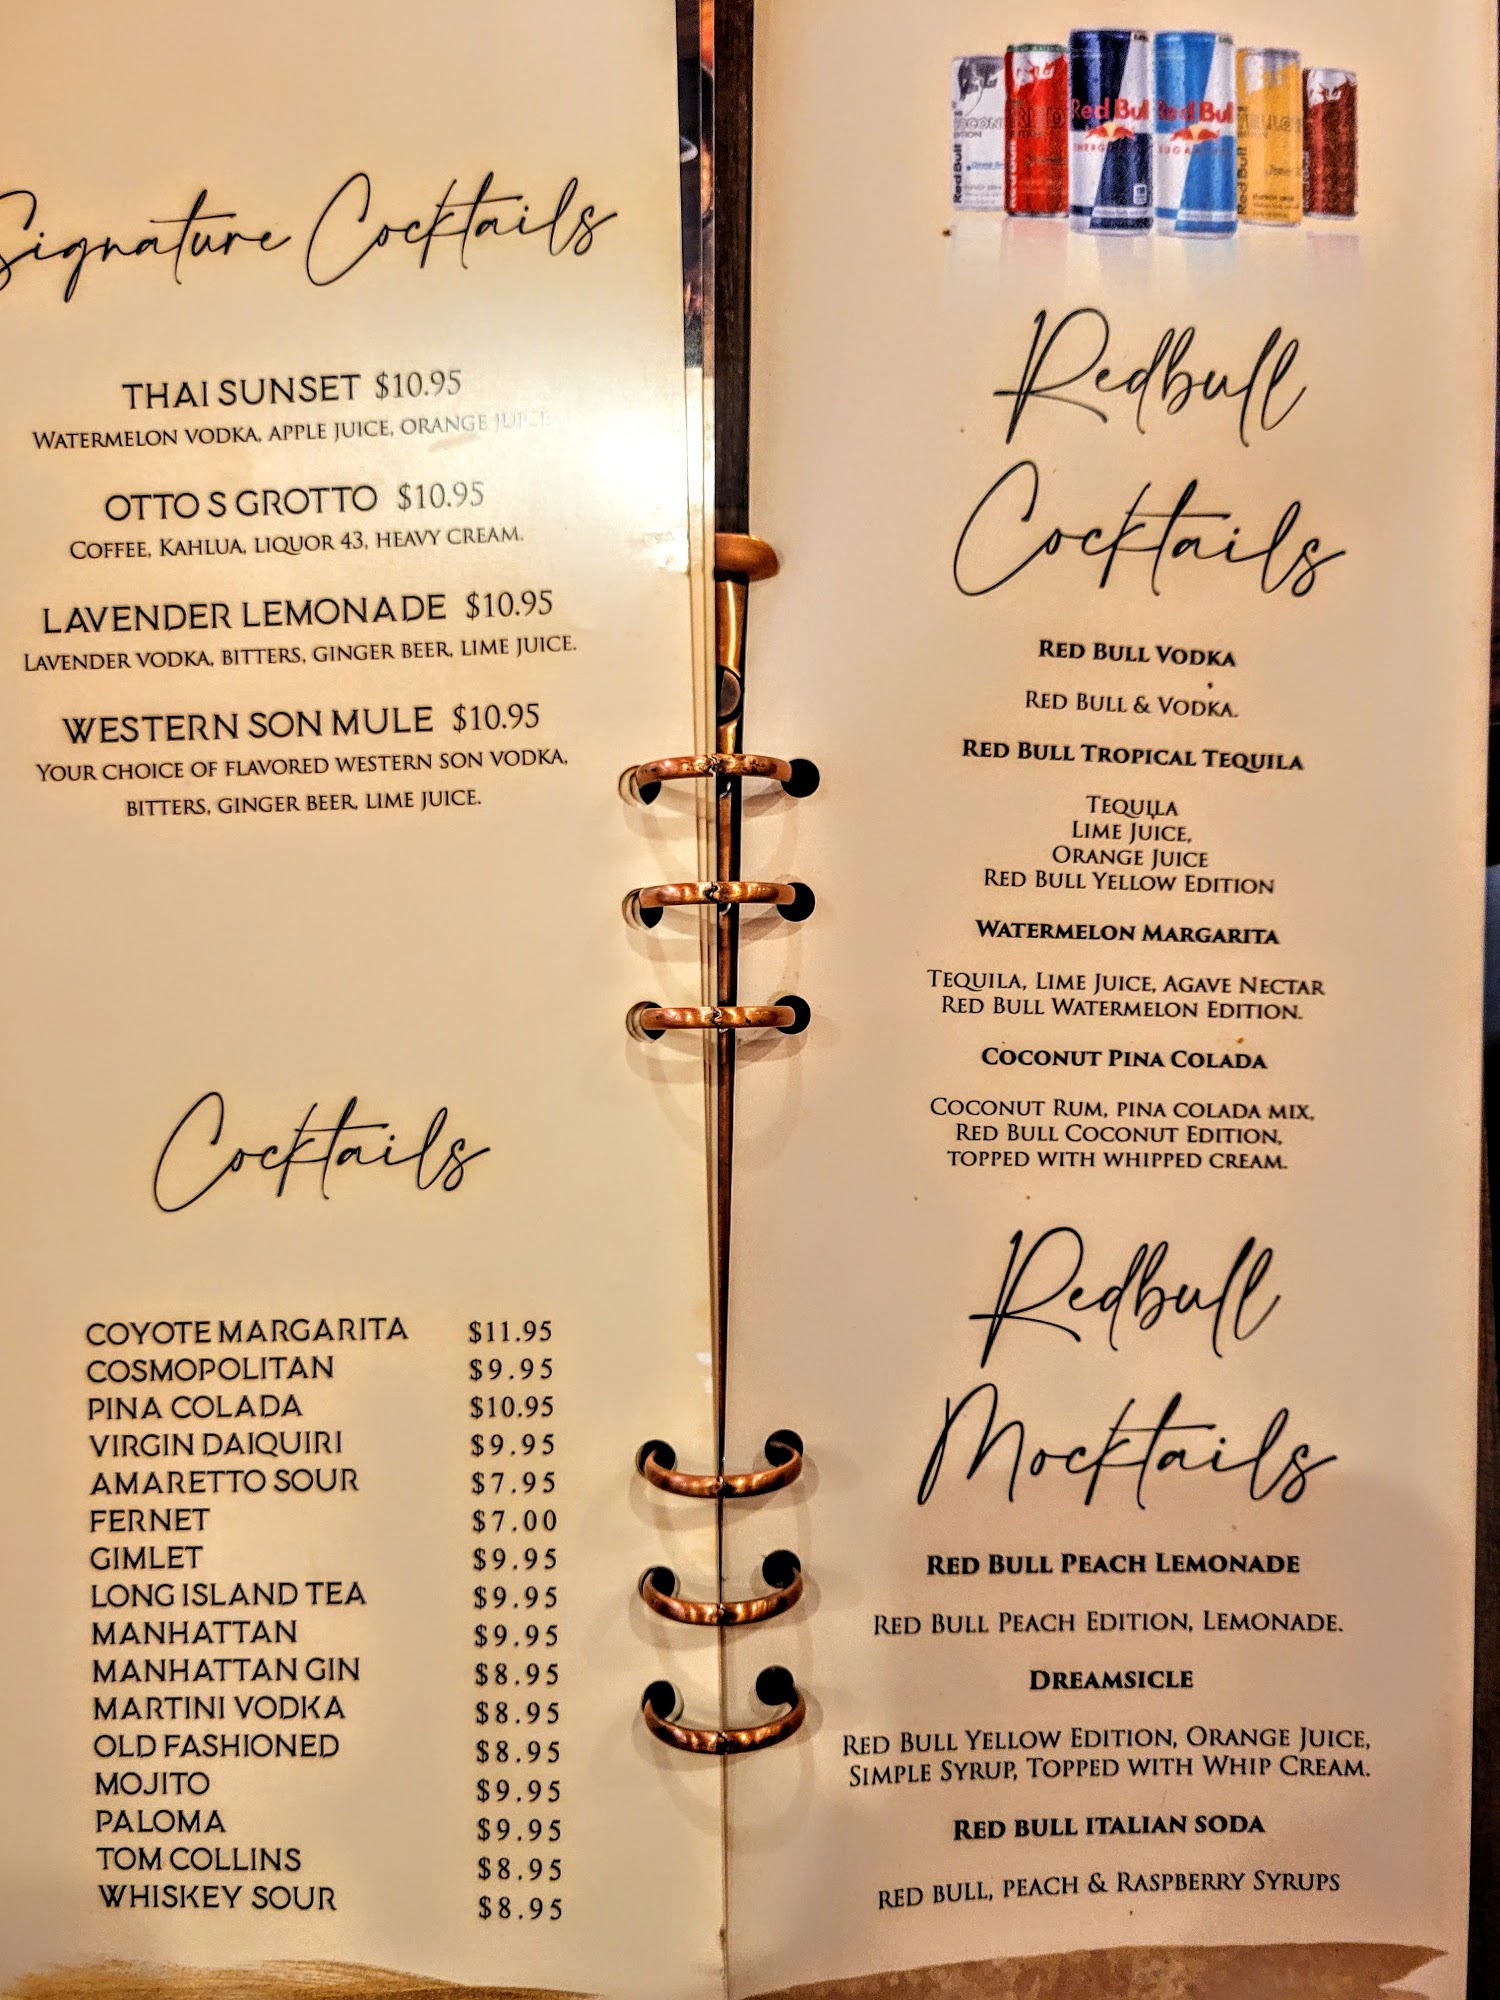 Signature Cocktails
THAI SUNSET $10.95
WATERMELON VODKA, APPLE JUICE, ORANGE JUICE
OTTO S GROTTO $10.95
COFFEE, KAHLUA, LIQUOR 43, HEAVY CREAM.
LAVENDER LEMONADE $10.95
LAVENDER VODKA, BITTERS, GINGER BEER, LIME JUICE.
WESTERN SON MULE $10.95
YOUR CHOICE OF FLAVORED WESTERN SON VODKA,
BITTERS, GINGER BEER, LIME JUICE.
Cocktails
COYOTE MARGARITA $11.95
COSMOPOLITAN $9.95
PINA COLADA $10.95
VIRGIN DAIQUIRI $9.95
AMARETTO SOUR $7.95
FERNET $7.00
GIMLET $9.95
LONG ISLAND TEA $9.95
MANHATTAN $9.95
MANHATTAN GIN $8.95
MARTINI VODKA $8.95
OLD FASHIONED $8.95
MOJITO $9.95
PALOMA $9.95
TOM COLLINS $8.95
WHISKEY SOUR $8.95
Red Bull
Red Bull
Red Bull
Red Bull
Redbull
Cocktails
RED BULL VODKA
RED BULL & VODKA.
RED BULL TROPICAL TEQUILA
TEQUILA
LIME JUICE,
ORANGE JUICE
RED BULL YELLOW EDITION
WATERMELON MARGARITA
TEQUILA, LIME JUICE, AGAVE NECTAR
RED BULL WATERMELON EDITION.
COCONUT PINA COLADA
COCONUT RUM, PINA COLADA MIX,
RED BULL COCONUT EDITION,
TOPPED WITH WHIPPED CREAM.
Redbull
Mocktails
RED BULL PEACH LEMONADE
RED BULL PEACH EDITION, LEMONADE.
DREAMSICLE
RED BULL YELLOW EDITION, ORANGE JUICE,
SIMPLE SYRUP, TOPPED WITH WHIP CREAM.
RED BULL ITALIAN SODA
RED BULL, PEACH & RASPBERRY SYRUPS